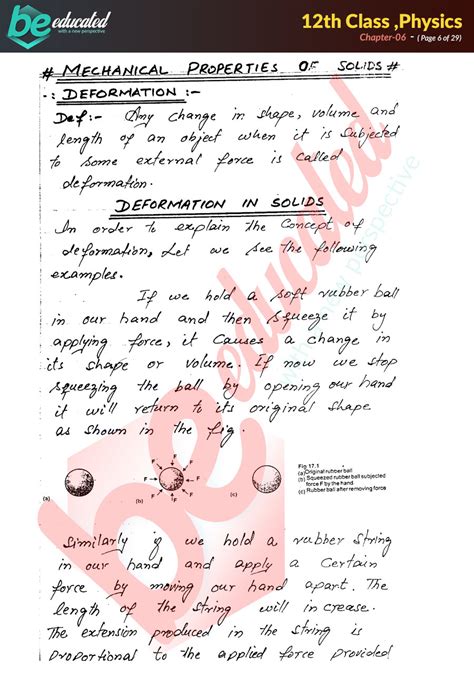 be educated
with a new perspective
12th Class ,Physics
Chapter-06 - ( Page 6 of 29)
# MECHANICAL PROPERTIES OF SOLIDS #
-: DEFORMATION :-
Def:- Any change in shape, volume and
length of an object when it is subjected
to some external force is called
deformation.
DEFORMATION IN SOLIDS
In order to explain the concept of
deformation, Let we see the following
examples.
If we hold a soft rubber ball
in our hand and then squeeze it by
applying force, it causes a change in
its shape or volume. If now we stop
squeezing the ball by opening our hand
it will return to its original shape
as shown in the fig.
Fig 17.1
(a) Original rubber ball
(b) Squeezed rubber ball subjected
force F by the hand
(c) Rubber ball after removing force
(a)
F F F F F F F F
(b)
(c)
Similarly if we hold a rubber string
in our hand and apply a certain
force by moving our hand apart. The
length of the string will in crease.
The extension produced in the string is
proportional to the applied force provided
be educated
with a new perspective